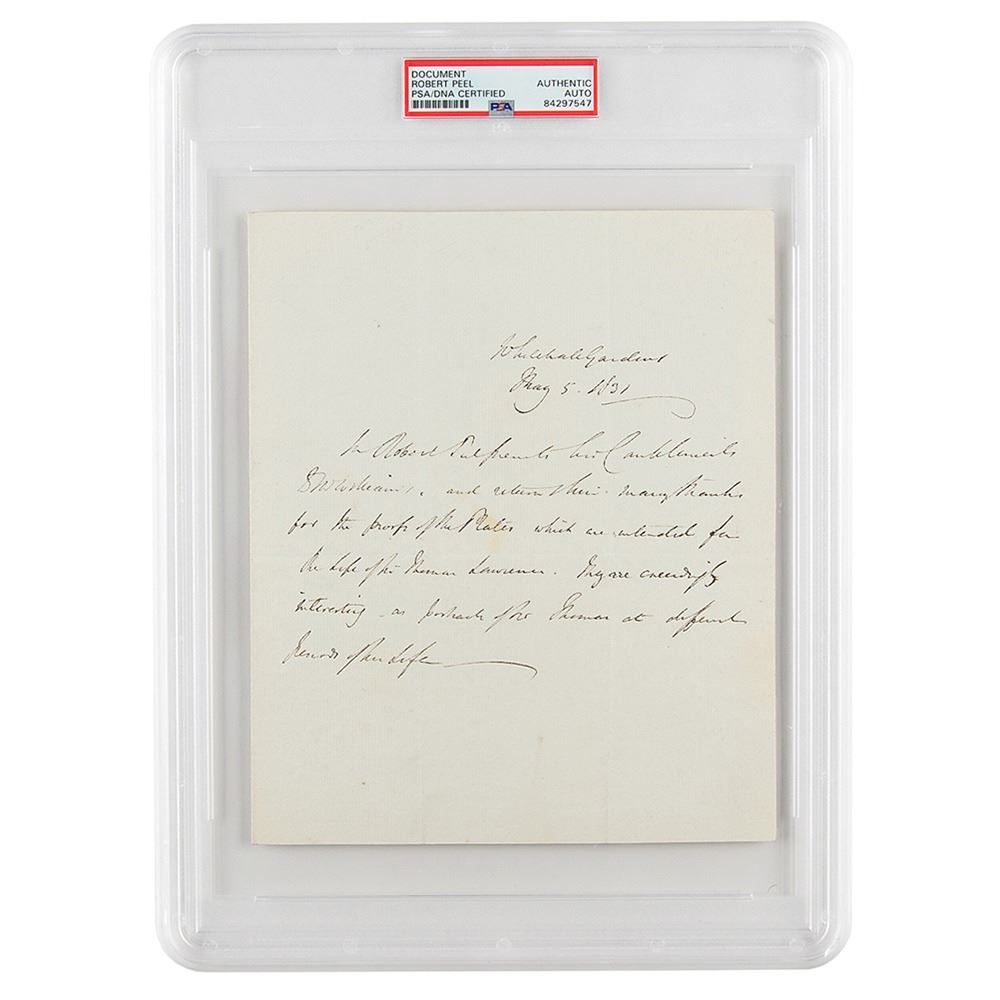 DOCUMENT
ROBERT PEEL
PSA/DNA CERTIFIED
AUTHENTIC
AUTO
84297547
PSA
Whitehall Gardens
May 5. 1831
Sir Robert Peel presents his Compliments
to Mr Williams, and returns him many thanks
for the proofs of the Plates which are intended for
the Life of Sir Thomas Lawrence. They are exceedingly
interesting as portraits of Sir Thomas at different
Periods of his Life